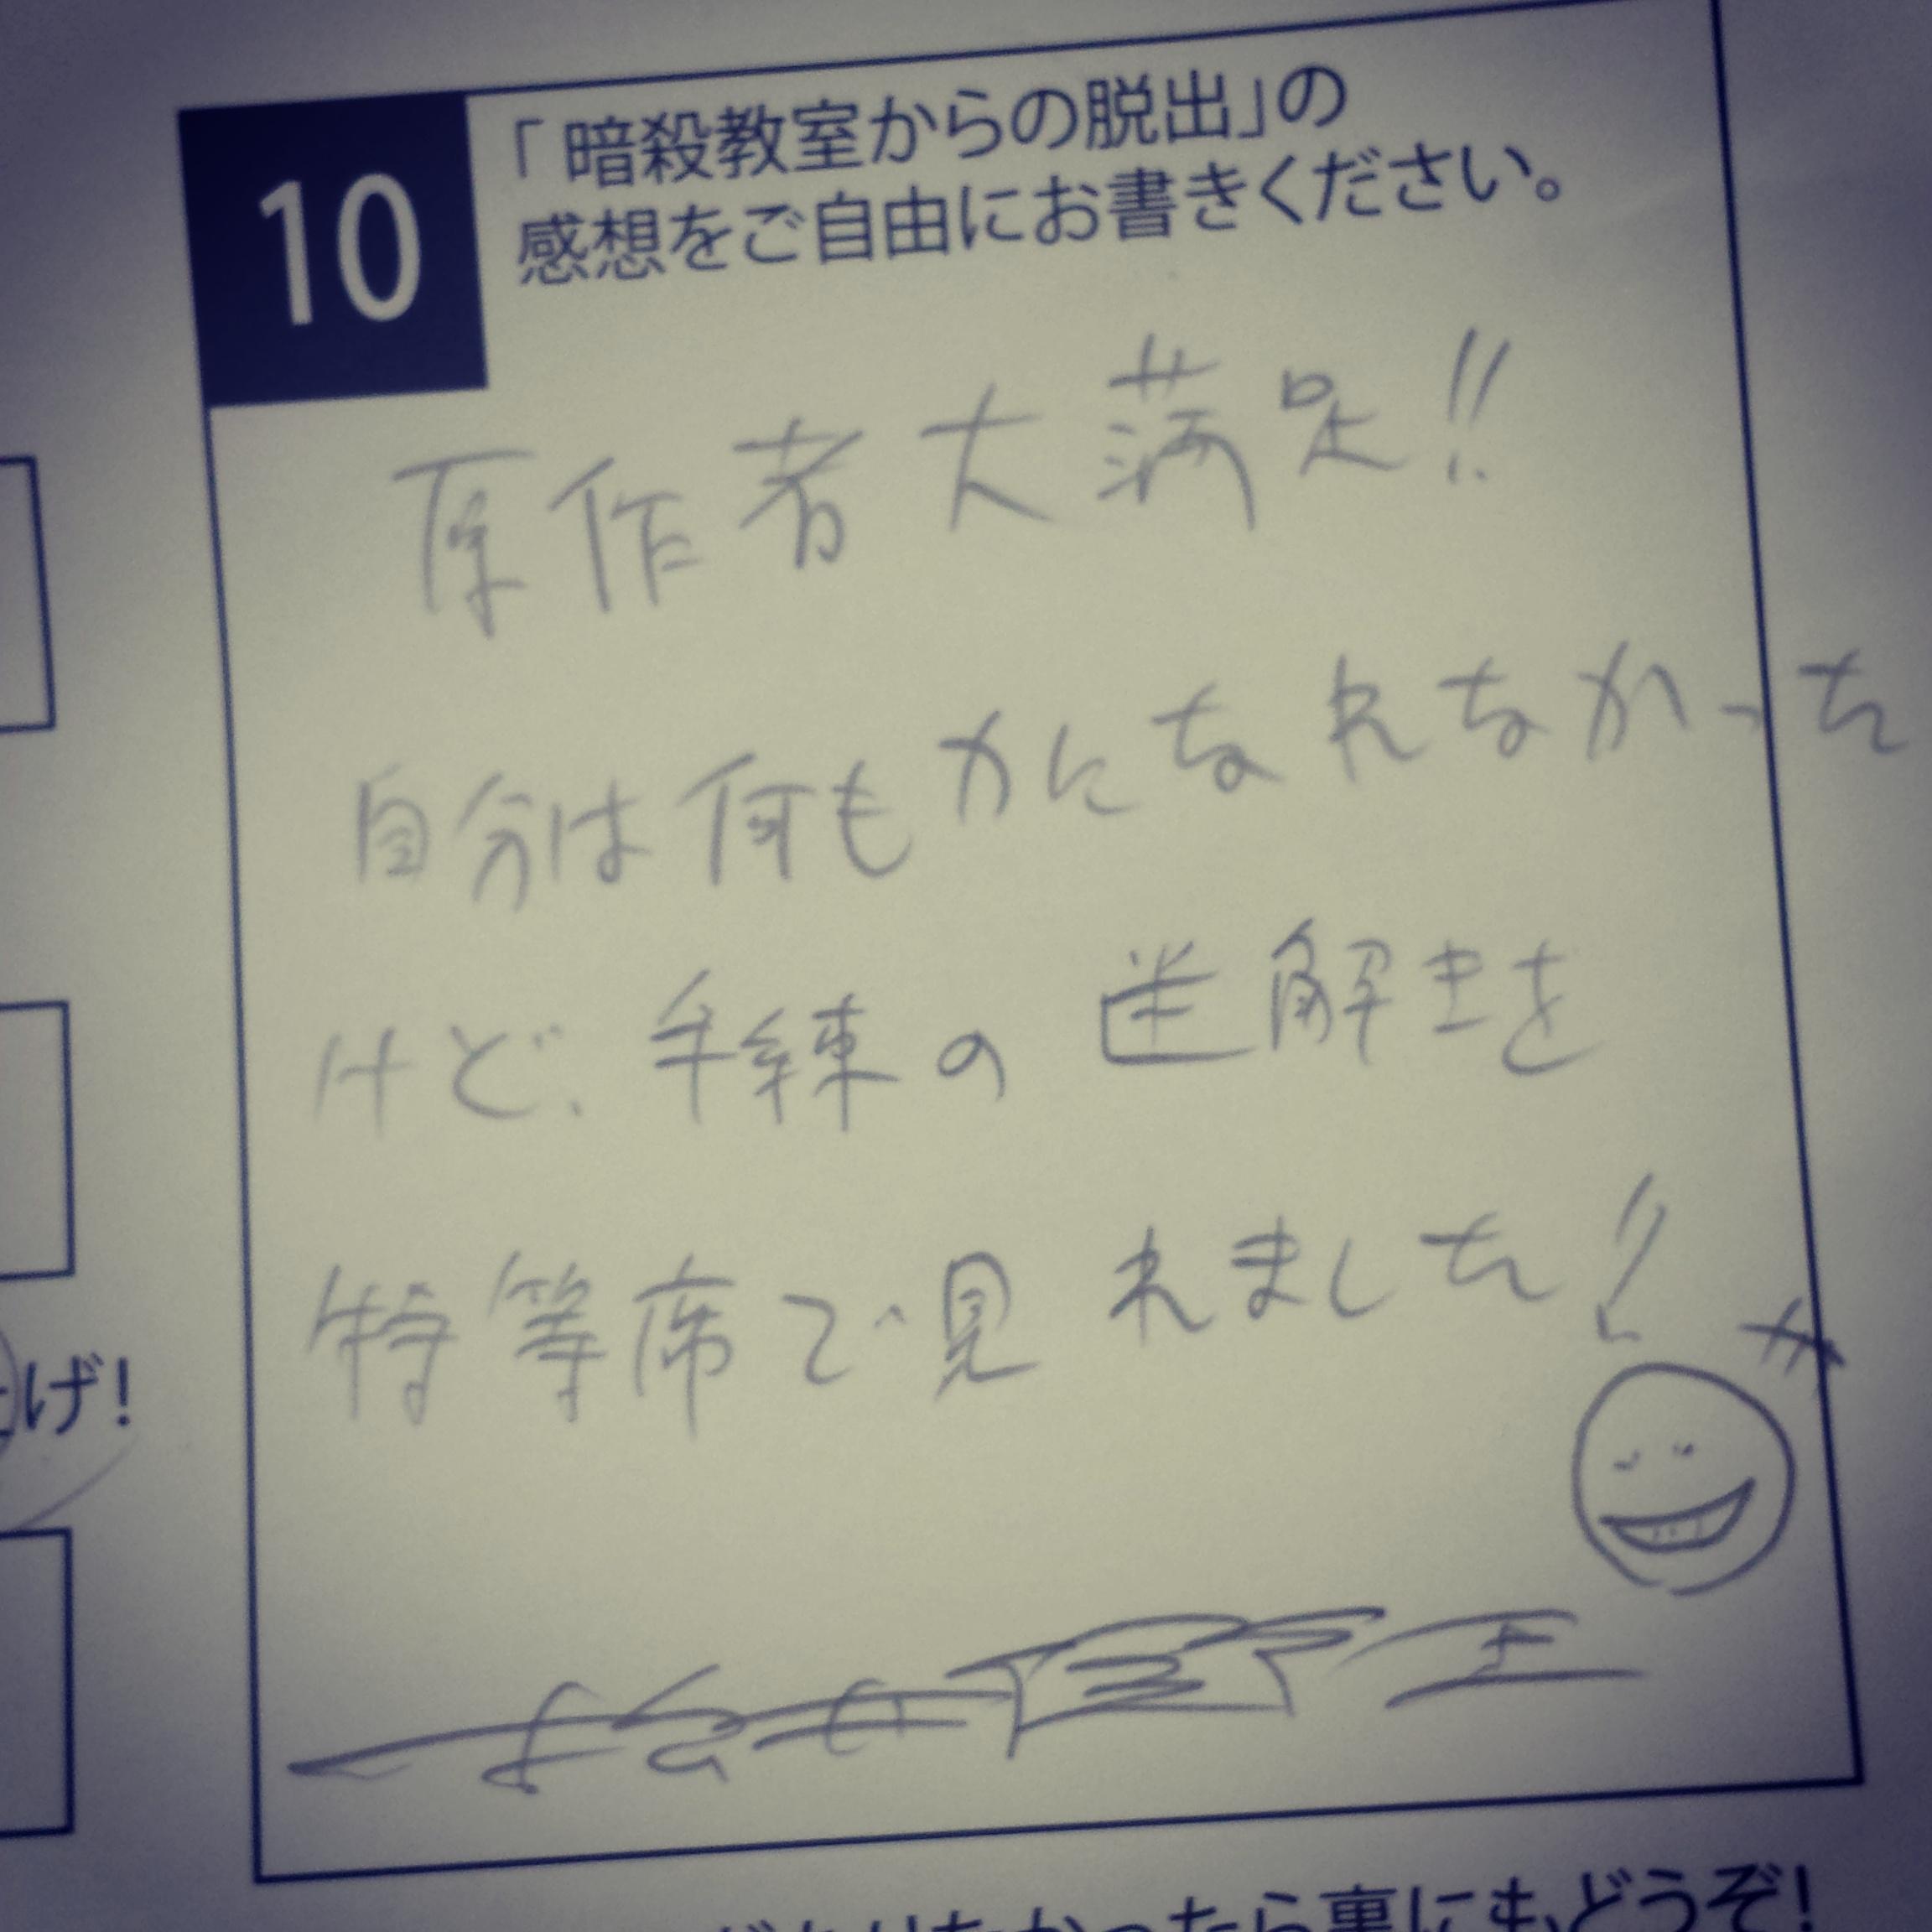 10
「暗殺教室からの脱出」の
感想をご自由にお書きください。
原作者大満足!!
自分は何も力になれなかった
けど、手練の迷解きを
特等席で見れました!!
げ!
かったら裏にもどうぞ!